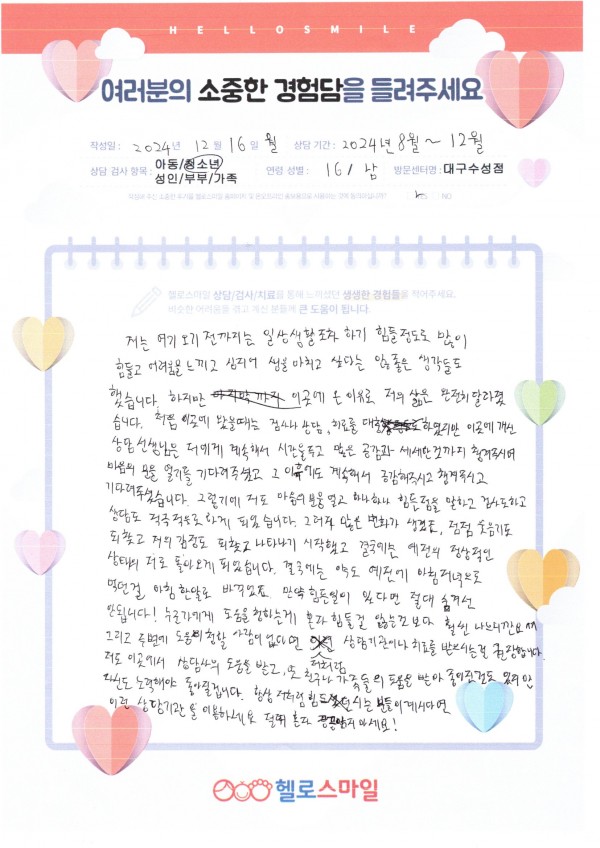 HELLOSMILE
여러분의 소중한 경험담을 들려주세요
작성일 : 2024년 12월 16일 월 상담 기간 : 2024년 8월 ~ 12월
상담·검사 항목 : 아동/청소년 성인/부부/가족 연령 성별 : 16 / 남 방문센터명 : 대구수성점
NO
헬로스마일 상담/검사/치료를 통해 느끼셨던 생생한 경험들을 적어주세요.
비슷한 어려움을 겪고 계신 분들께 큰 도움이 됩니다.
저는 여기 오기 전까지는 일상생활조차 하기 힘들정도로 많이
힘들고 어려움을 느끼고 심지어 생을 마치고 싶다는 안좋은 생각들도
했습니다. 하지만 이곳에 온 이유로 저의 삶은 완전히 달라졌
습니다. 처음 이곳에 왔을때는 검사나 상담, 치료를 하였지만 이곳에 계신
상담선생님은 저에게 계속해서 시간을 두고 많은 공감과 세세한것까지 챙겨주시며
마음의 문을 열기를 기다려주셨고 그 이후에도 계속해서 공감해주시고 챙겨주시고
기다려주셨습니다. 그렇기에 저도 마음의 문을 열고 하나하나 힘든점을 말하고 검사도하고
상담도 적극적으로 하게 되었습니다. 그러자 많은 변화가 생겼고, 점점 웃음기도
되찾고 저의 감정도 되찾고 나타나기 시작했고 결국에는 예전의 정상적인
상태의 저로 돌아오게 되었습니다. 결국에는 약도 예전에 아침저녁으로
먹던걸 아침 한알로 바뀌었죠. 만약 힘든일이 있다면 절대 숨겨선
안됩니다! 누군가에게 도움을 청하는게 혼자 힘들걸 앓는것보다 훨씬 나으니깐요
그리고 주변에 도움 청할 사람이 없다면 상담기관이나 치료를 받으시는걸 권장합니다.
저도 이곳에서 상담사의 도움을 받고, 또 저처럼 친구나 가족들의 도움을 받아
자신도 노력해야 돌아질겁니다. 항상 저처럼 힘드시는 분들이 계시다면
이런 상담기관을 이용하세요 절대 혼자 마세요!
헬로스마일